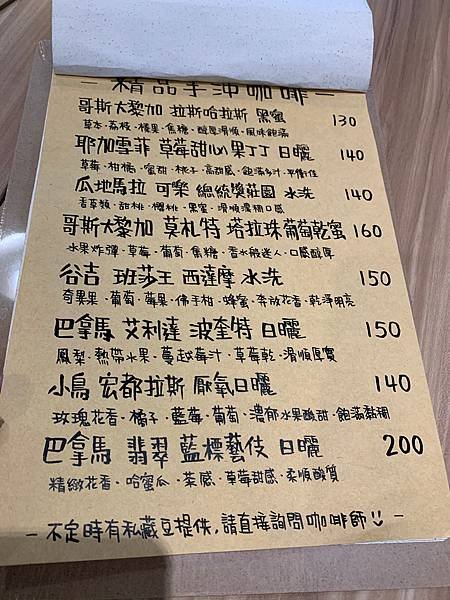 — 精品手沖咖啡 —
哥斯大黎加 拉斯哈拉斯 黑蜜 130
草本·荔枝·榛果·焦糖·醇厚滑順·風味飽滿
耶加雪菲 草莓甜心果丁丁 日曬 140
草莓·柑橘·蜜甜·桃子·高甜感·飽滿多汁·平衡佳
瓜地馬拉 可樂 總統獎莊園 水洗 140
香草類·甜桃·櫻桃·果蜜·滑順濃稠口感
哥斯大黎加 莫札特 塔拉珠葡萄乾蜜 160
水果炸彈·草莓·葡萄·焦糖·香水般迷人·口感醇厚
谷吉 班莎王 西達摩 水洗 150
奇異果·葡萄·蘋果·佛手柑·蜂蜜·奔放花香·乾淨明亮
巴拿馬 艾利達 波奎特 日曬 150
鳳梨·熱帶水果·蔓越莓汁·草莓乾·滑順厚實
小鳥 宏都拉斯 厭氧日曬 140
玫瑰花香·橘子·藍莓·葡萄·濃郁水果酸甜·飽滿黏稠
巴拿馬 翡翠 藍標藝伎 日曬 200
精緻花香·哈蜜瓜·茶感·草莓甜感·柔順酸質
— 不定時有私藏豆提供,請直接詢問咖啡師 —